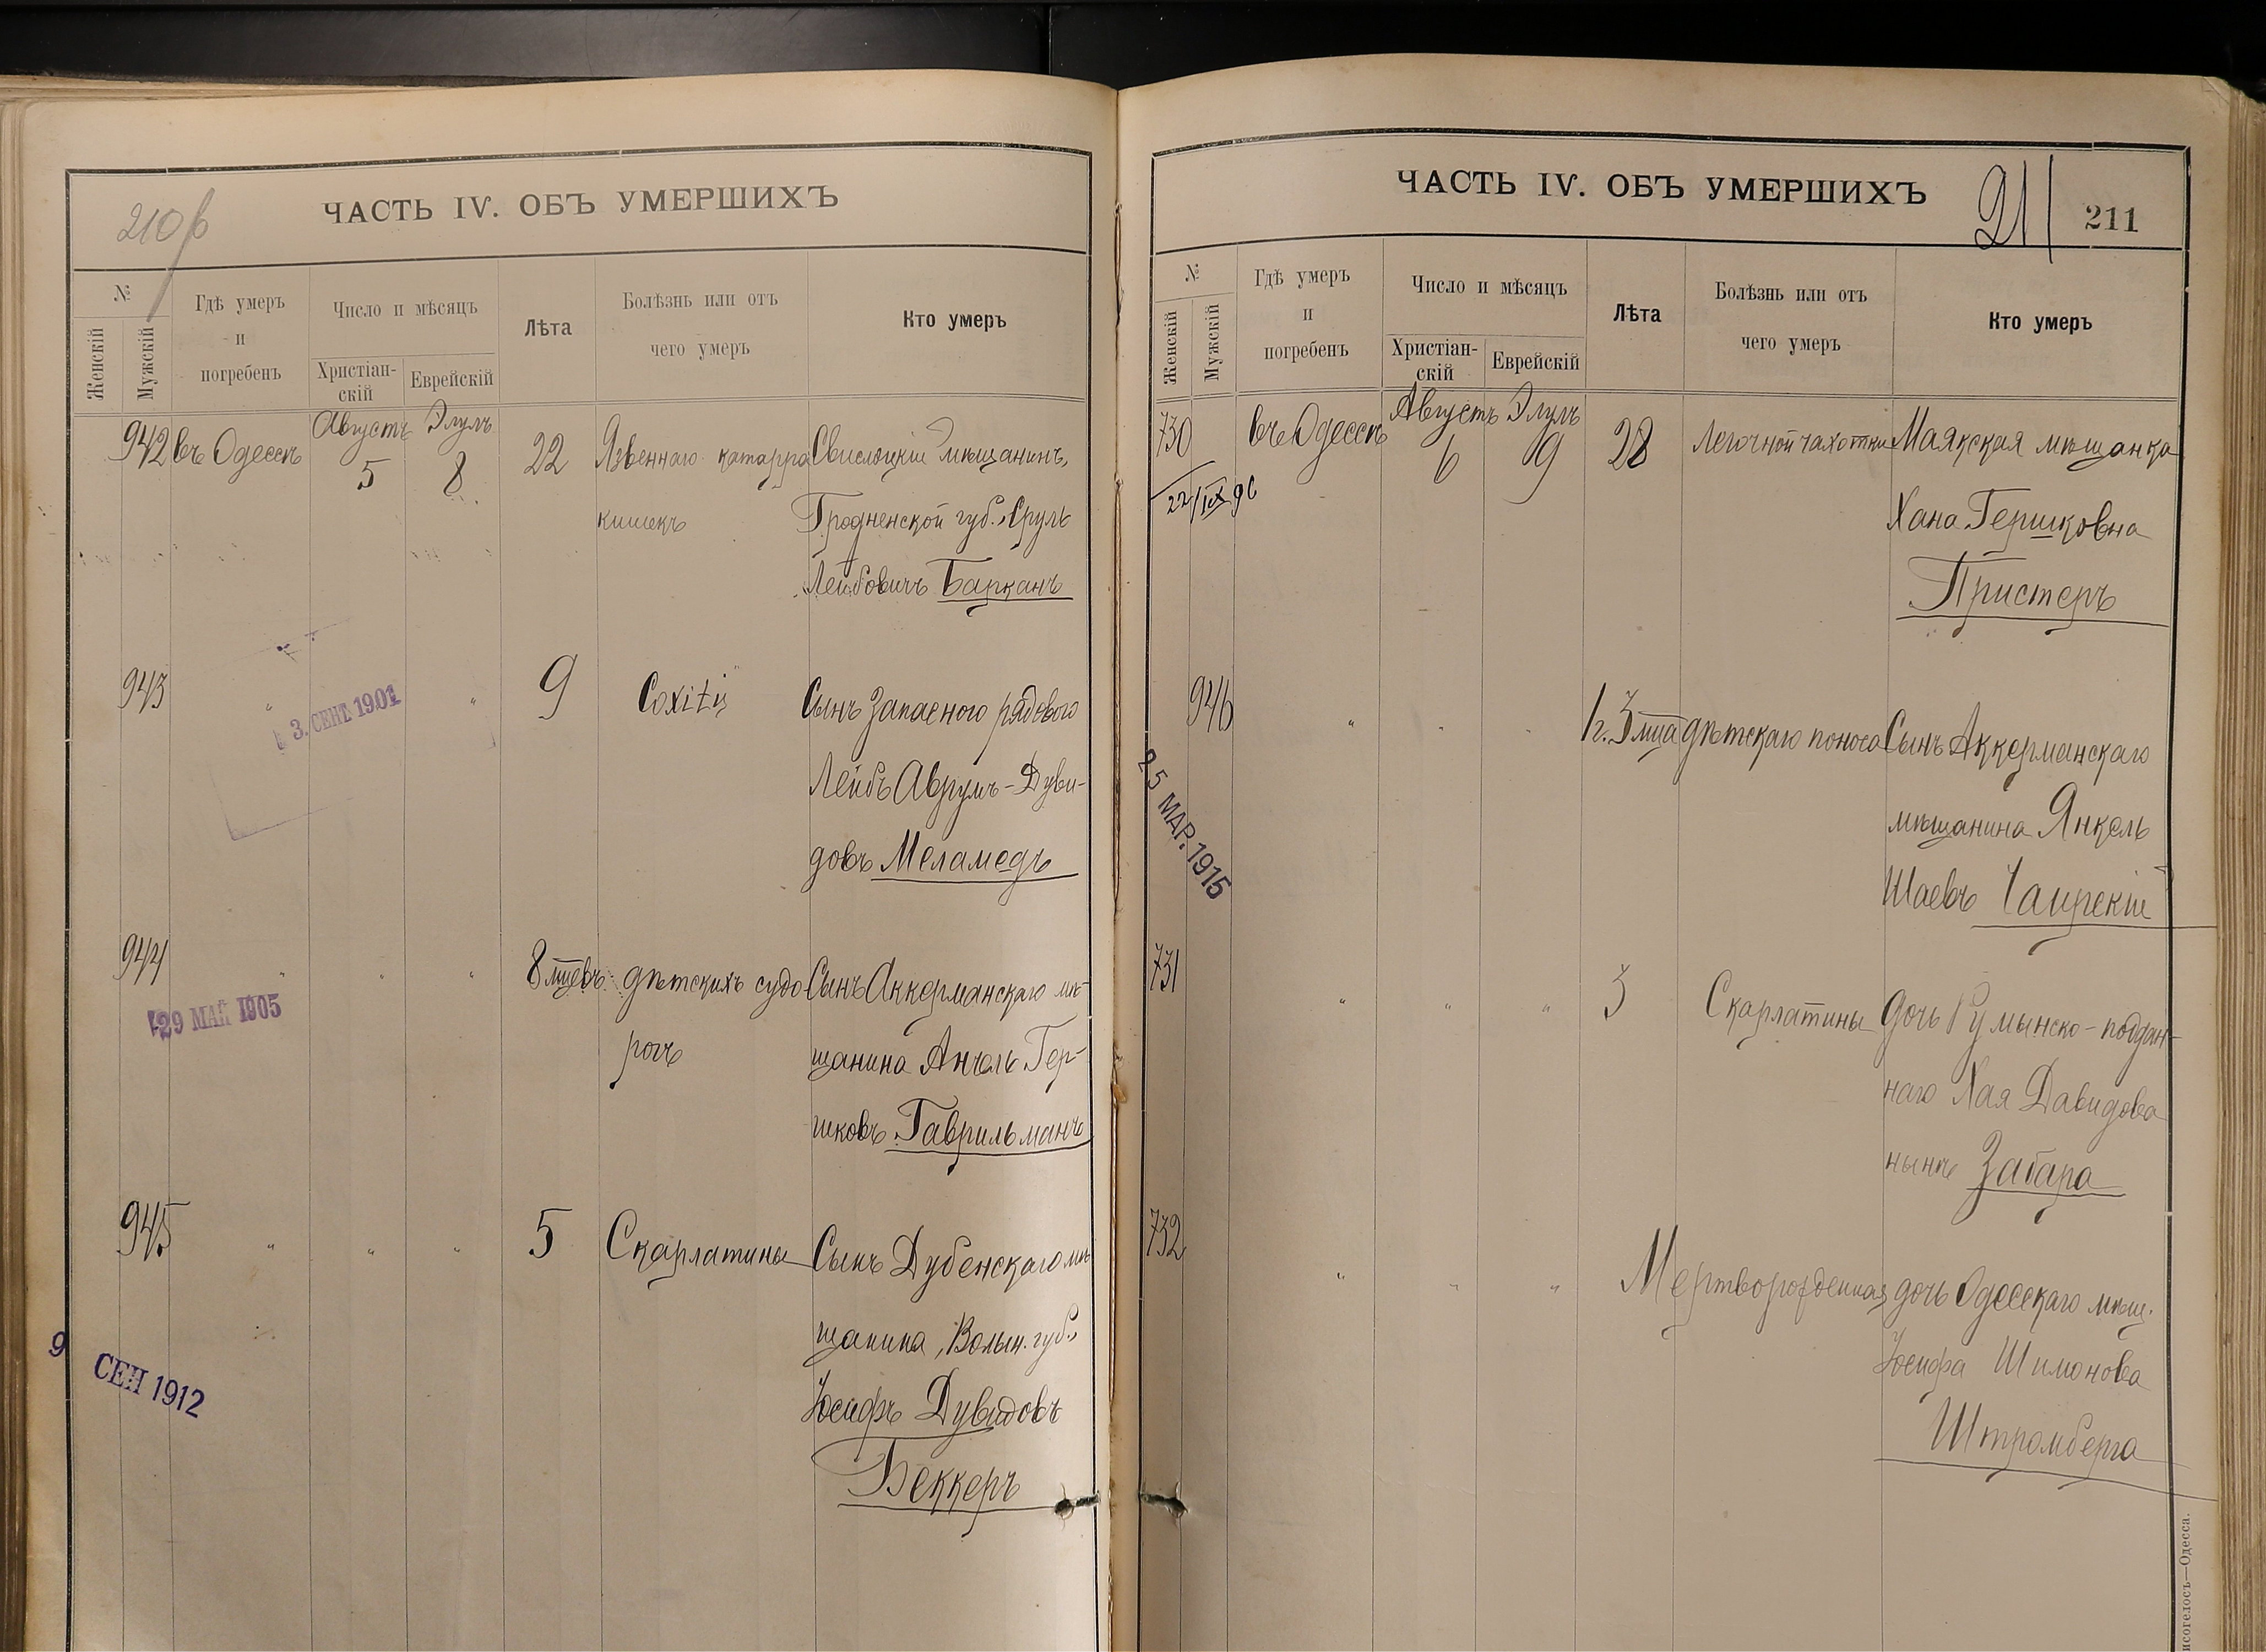 210б
ЧАСТЬ IV. ОБЪ УМЕРШИХЪ
№
Женскій
Мужскій
Гдѣ умеръ
и
погребенъ
Число и мѣсяцъ
Христіан-
скій
Еврейскій
Лѣта
Болѣзнь или отъ
чего умеръ
Кто умеръ
Августъ Элулъ
942 въ Одессѣ 5 8 22 Язвеннаго катарра Свислоцкій мѣщанинъ,
кишекъ Гродненской губ., Сруль
Лейбовичъ Барканъ
943 " " 9 Coxitis Сынъ Запаснаго рядового
3. СЕНТ. 1901
Лейбъ Аврумъ-Дуви-
довъ Меламедъ
944 " " " 8 мцевъ дѣтскихъ судо- Сынъ Аккерманскаго мѣ-
29 МАЙ 1905
рогъ щанина Анчель Гер-
шковъ Гаврильманъ
945 " " " 5 Скарлатины Сынъ Дубенскаго мѣ-
щанина, Волын. губ.,
9 СЕН 1912
Іосифъ Дувидовъ
Беккеръ
ЧАСТЬ IV. ОБЪ УМЕРШИХЪ
211
211
№
Женскій
Мужскій
Гдѣ умеръ
и
погребенъ
Число и мѣсяцъ
Христіан-
скій
Еврейскій
Лѣта
Болѣзнь или отъ
чего умеръ
Кто умеръ
Августъ Элулъ
730 въ Одессѣ 6 9 28 Легочной чахотки Маякская мѣщанка
Хана Гершковна
Пристеръ
946 " " " 3 мца дѣтскаго поноса Сынъ Аккерманскаго
мѣщанина Янкель
25 МАР. 1915
Шаевъ
731 " " " 3 Скарлатины дочь Румынско-поддан-
наго Хая Давидова
Затара
732 " " " Мертворожденная дочь Одесскаго мѣщ.
Іосифа Шимонова
Штромберга
исогелосъ—Одесса.